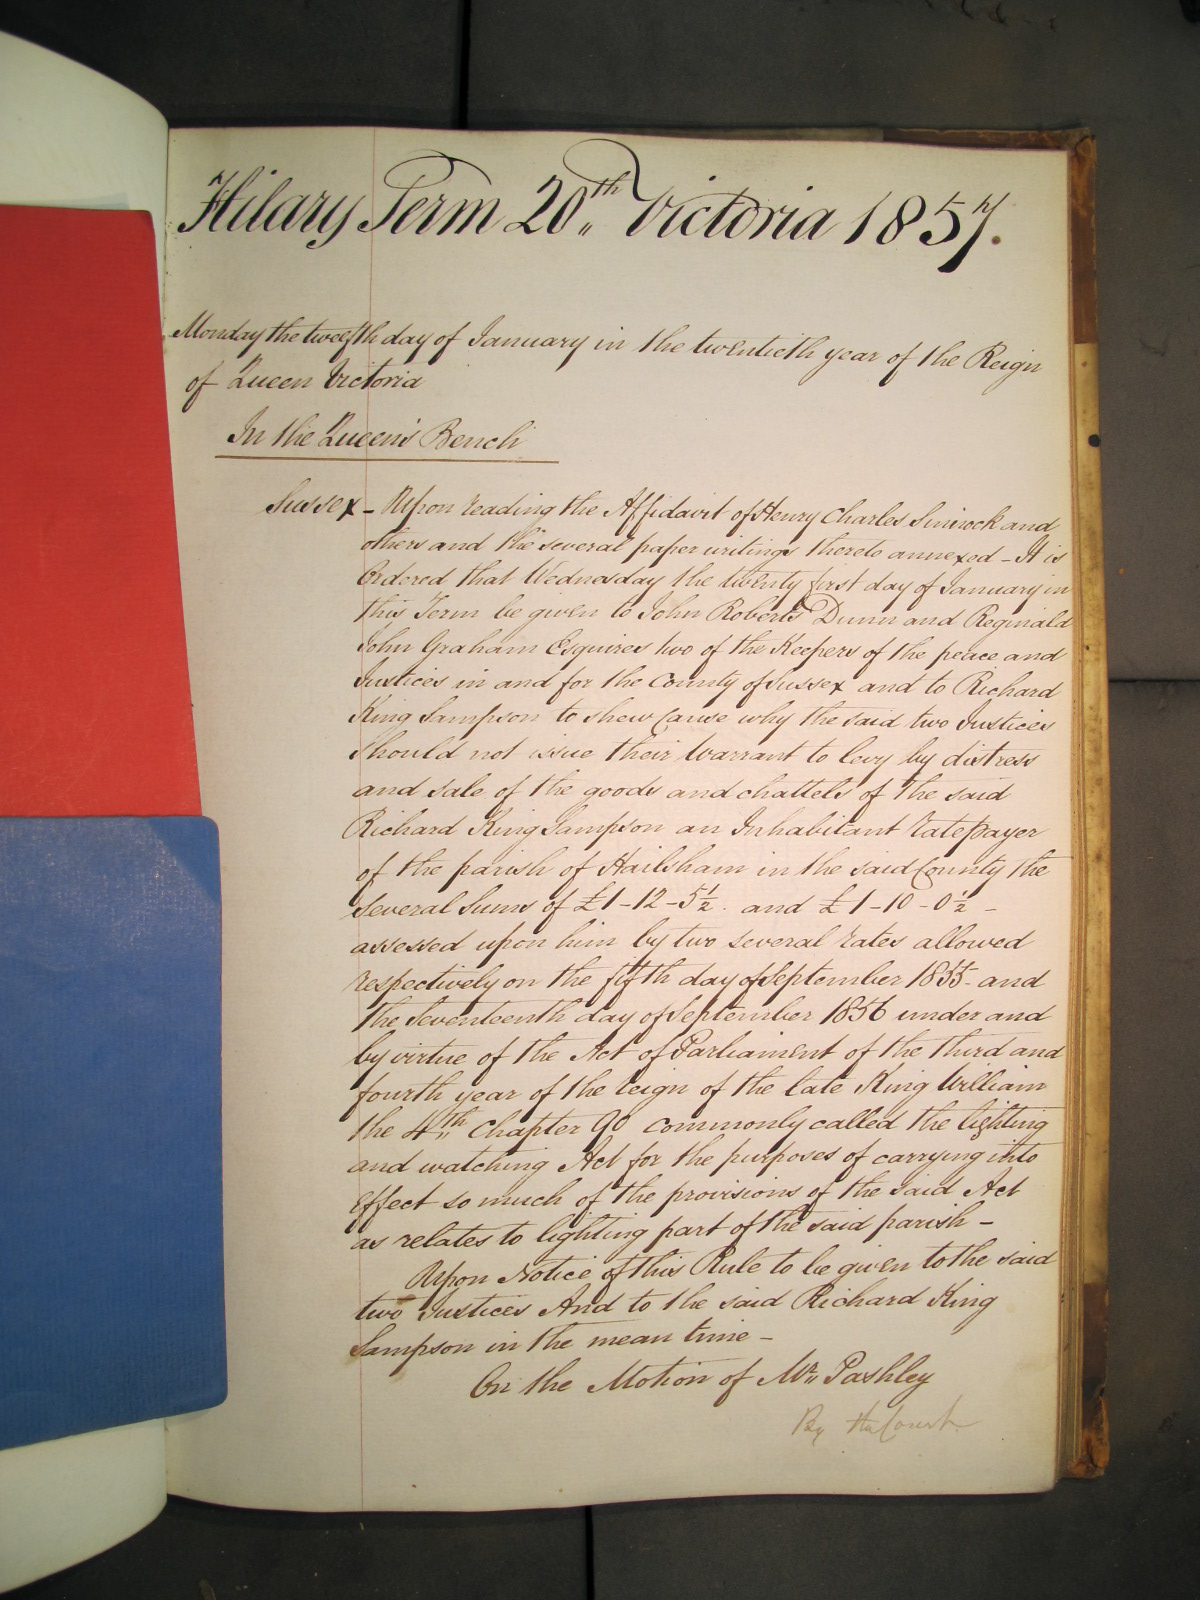 Hilary Term 20th Victoria 1857.
Monday the twelfth day of January in the twentieth year of the Reign
of Queen Victoria
In the Queen's Bench
Sussex - Upon reading the Affidavit of Henry Charles Sinnock and
others and the several paper writings thereto annexed - It is
Ordered that Wednesday the twenty first day of January in
this Term be given to John Roberts Dunn and Reginald
John Graham Esquires two of the Keepers of the peace and
Justices in and for the County of Sussex and to Richard
King Sampson to shew Cause why the said two Justices
should not issue their Warrant to levy by distress
and sale of the goods and chattels of the said
Richard King Sampson an Inhabitant ratepayer
of the parish of Hailsham in the said County the
several Sums of £1-12-5½ and £1-10-0½ -
assessed upon him by two several rates allowed
respectively on the fifth day of September 1855 and
the seventeenth day of September 1856 under and
by virtue of the Act of Parliament of the third and
fourth year of the reign of the late King William
the 4th Chapter 90 commonly called the lighting
and watching Act for the purposes of carrying into
effect so much of the provisions of the said Act
as relates to lighting part of the said parish -
Upon Notice of this Rule to be given to the said
two Justices And to the said Richard King
Sampson in the mean time -
On the Motion of Mr. Pashley
By the Court